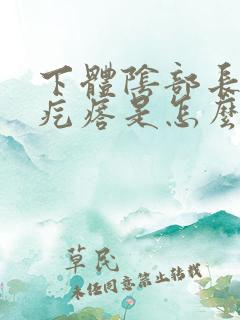 下體陰部長
疙瘩是怎麼
草民
未经同意禁止转载